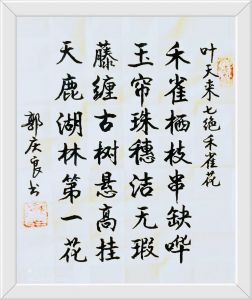 叶天来七绝禾雀花
禾雀栖枝串缺哗
玉帘珠穗洁无瑕
藤缠古树悬高挂
天鹿湖林第一花
郭庆良书